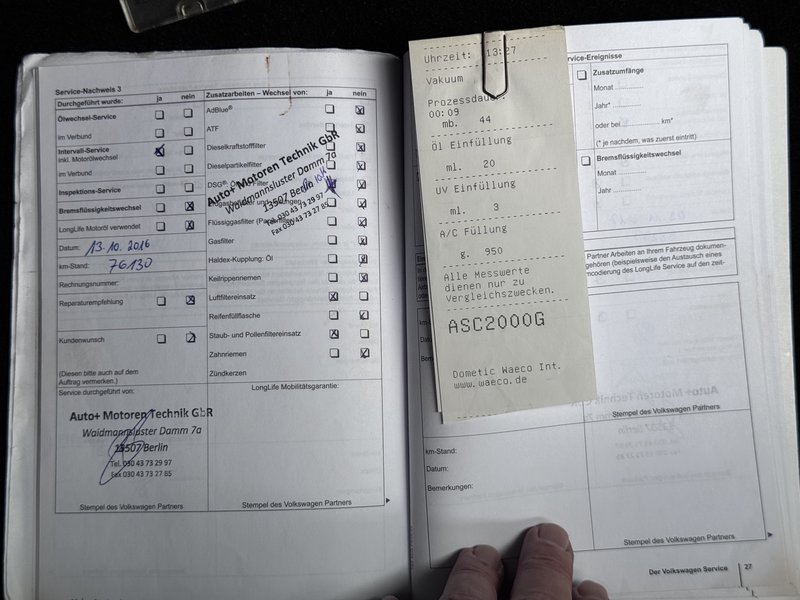 Service-Nachweis 3
Durchgeführt wurde: ja nein
Ölwechsel-Service
im Verbund
Intervall-Service
inkl. Motorölwechsel
im Verbund
Inspektions-Service
Bremsflüssigkeitswechsel
LongLife Motoröl verwendet
Datum: 13.10.2016
km-Stand: 76130
Rechnungsnummer:
Reparaturempfehlung
Kundenwunsch
(Diesen bitte auch auf dem
Auftrag vermerken.)
Zusatzarbeiten – Wechsel von: ja nein
AdBlue®
ATF
Dieselkraftstofffilter
Dieselpartikelfilter
DSG®:
Flüssiggasfilter
Gasfilter
Haldex-Kupplung: Öl
Keilrippenriemen
Luftfiltereinsatz
Reifenfüllflasche
Staub- und Pollenfiltereinsatz
Zahnriemen
Zündkerzen
Auto+ Motoren Technik GbR
Waidmannsluster Damm 7a
13507 Berlin
Tel. 030 43 73 29 97
Fax 030 43 73 27 85
Service durchgeführt von:
Auto+ Motoren Technik GbR
Waidmannsluster Damm 7a
13507 Berlin
Tel. 030 43 73 29 97
Fax 030 43 73 27 85
Stempel des Volkswagen Partners
LongLife Mobilitätsgarantie:
Stempel des Volkswagen Partners
Uhrzeit: 13:27
Vakuum
Prozessdauer:
00:09
mb. 44
Öl Einfüllung
ml. 20
UV Einfüllung
ml. 3
A/C Füllung
g. 950
Alle Messwerte
dienen nur zu
Vergleichszwecken.
ASC2000G
Dometic Waeco Int.
www.waeco.de
rvice-Ereignisse
Zusatzumfänge
Monat
Jahr*
oder bei km*
(* je nachdem, was zuerst eintritt)
Bremsflüssigkeitswechsel
Monat
Jahr
Partner Arbeiten an Ihrem Fahrzeug dokumen-
gehören (beispielsweise den Austausch eines
mcodierung des LongLife Service auf den zeit-
Stempel des Volkswagen Partners
km-Stand:
Datum:
Bemerkungen:
Stempel des Volkswagen Partners
Der Volkswagen Service 27